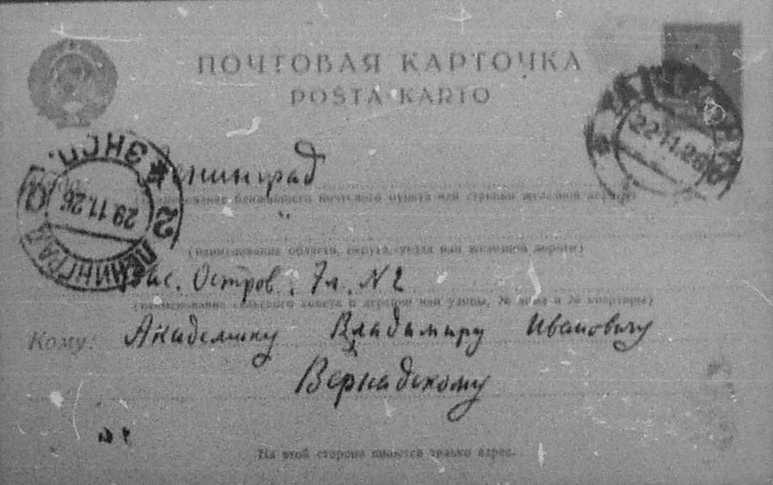 ПОЧТОВАЯ КАРТОЧКА
POŜTA KARTO
22 11 26
Ленинград
(наименование ближайшего почтового пункта или станции железной дороги)
2 ЭКСП.
29 11 26
ЛЕНИНГРАД
(наименование области, округа, уезда или железной дороги)
Вас. Остров. 7л. N2
(наименование сельского совета и деревни или улицы, № дома и № квартиры)
Кому: Академику Владимиру Ивановичу
Вернадскому
На этой стороне пишется только адрес.